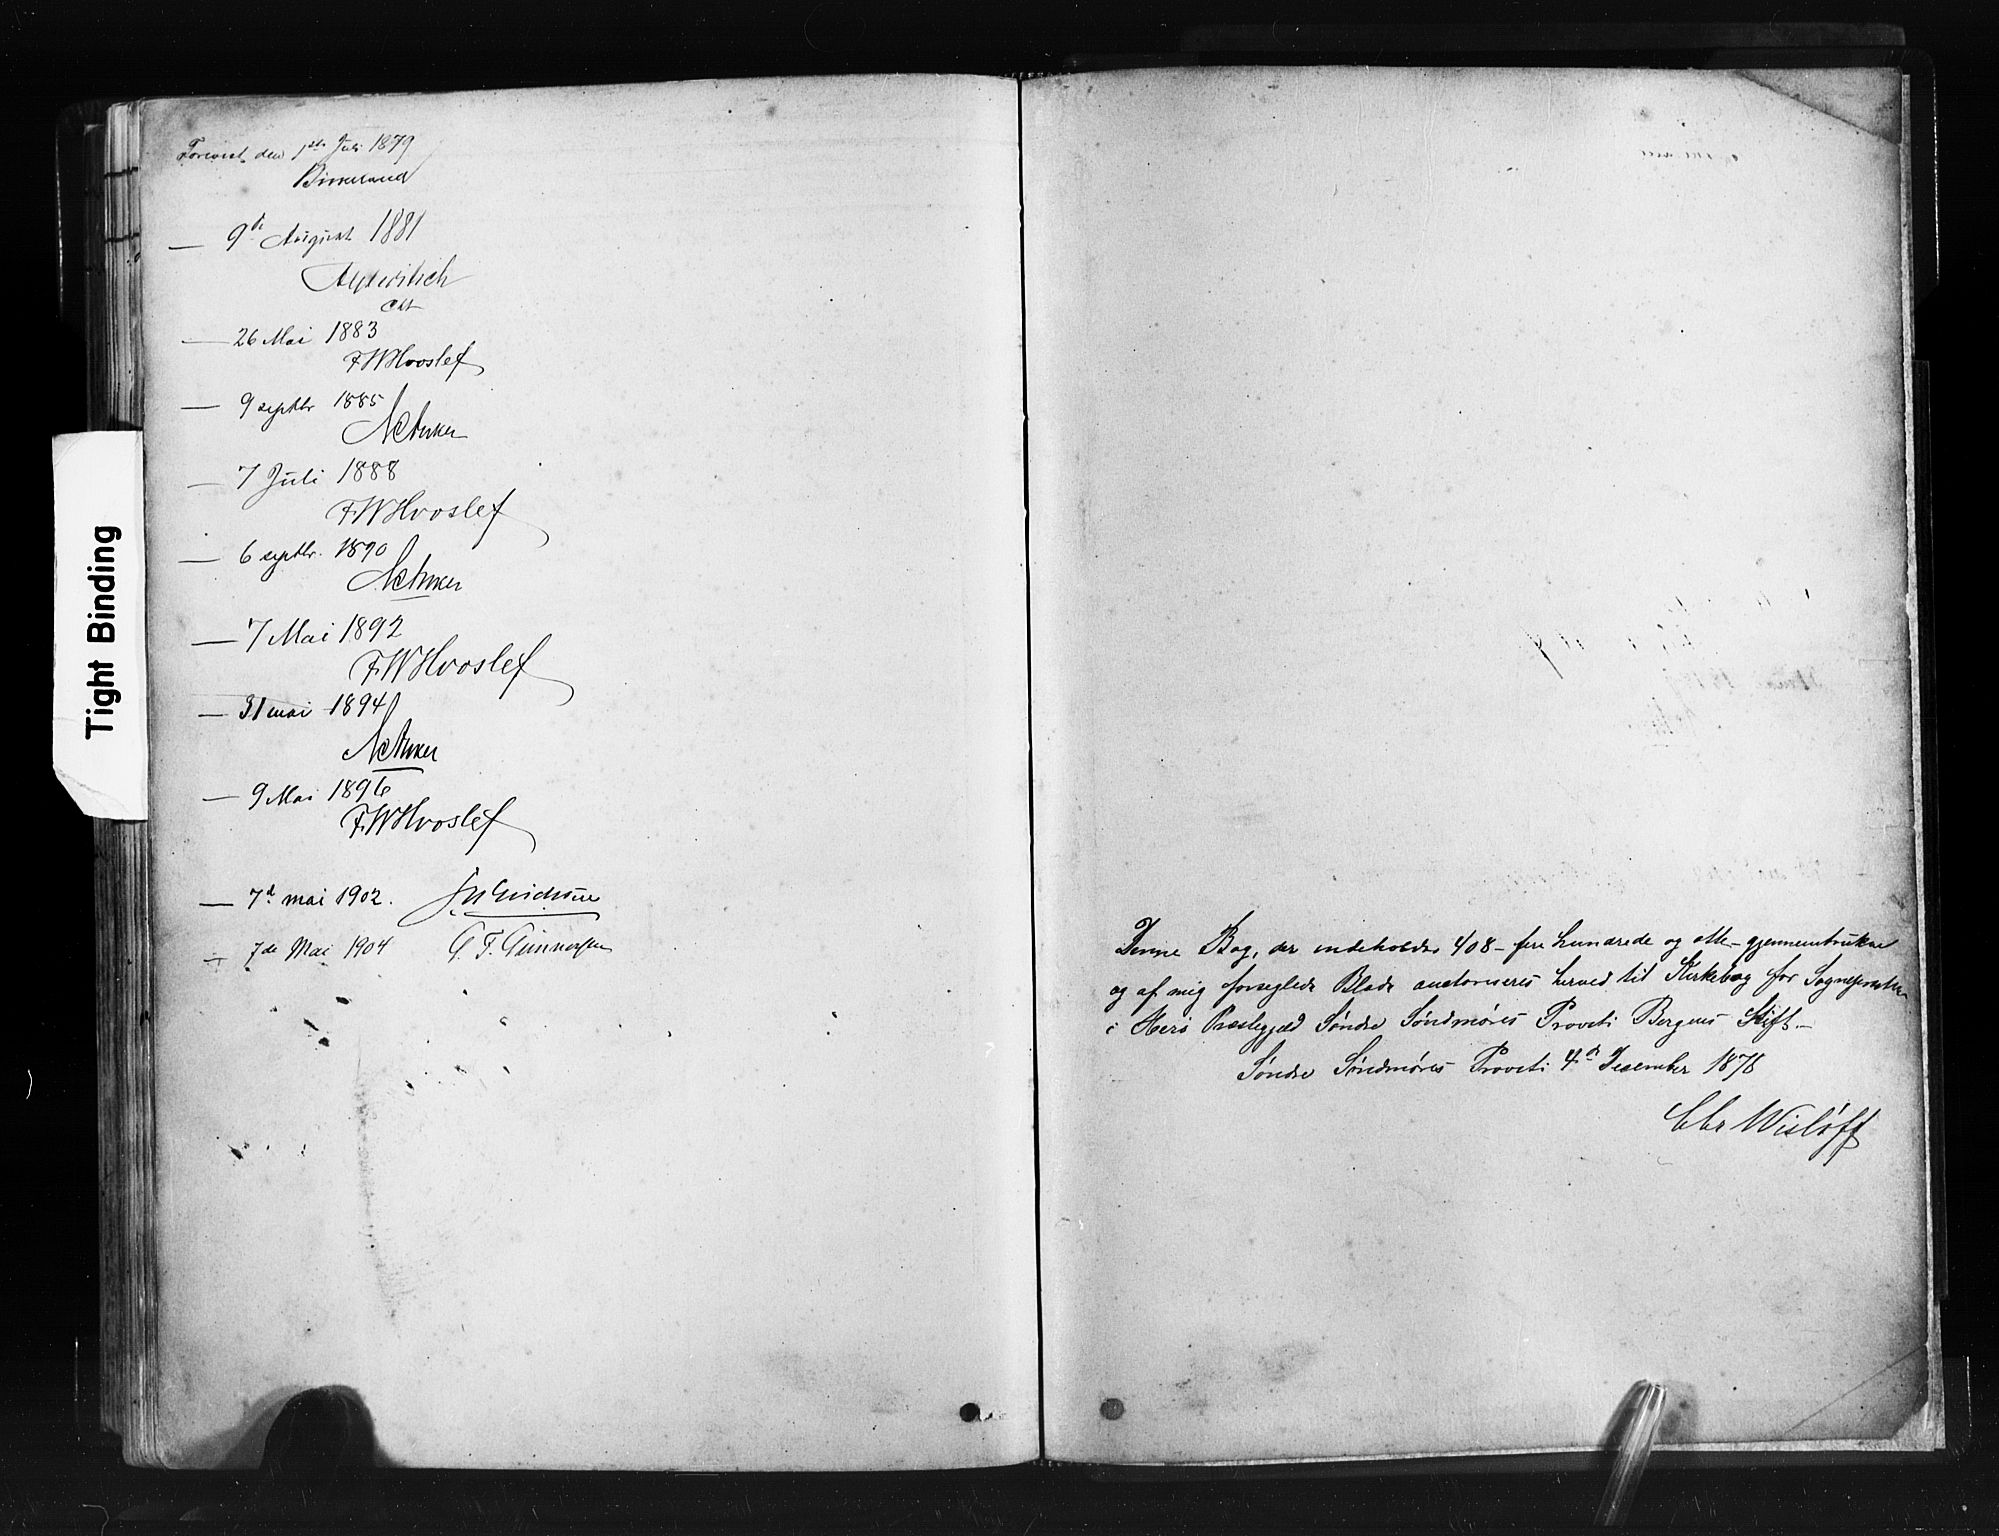 Forevist den 1ste Juli 1879
— 9de August 1881
— 26 Mai 1883
F W Hvoslef
— 9 septbr 1885
— 7 Juli 1888
F. W Hvoslef
— 6 septbr. 1890
— 7 Mai 1892
F. W Hvoslef
— 31 mai 1894
— 9 Mai 1896
F. W Hvoslef
— 7d mai 1902.
— 7de Mai 1904 G. F. Gunnersen
Tight Binding
Denne Bog, der indeholder 408 – fire hundrede og otte – gjennemtrukne
og af mig forseglede Blade autoriseres herved til Kirkebog for Sognepresten
i Herø Præstegjæld Søndre Søndmøres Provsti Bergens Stift –
Søndre Søndmøres Provsti 4de December 1878
Chr Wisløff